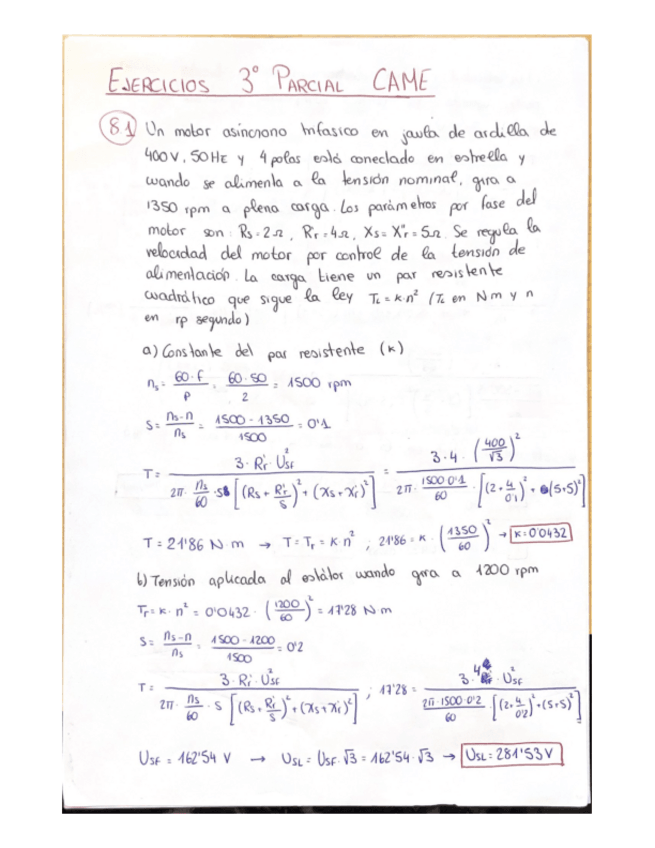 EJERCICIOS 3º PARCIAL CAME
8.1 Un motor asíncrono trifásico en jaula de ardilla de
400V, 50Hz y 4 polos está conectado en estrella y
cuando se alimenta a la tensión nominal, gira a
1350 rpm a plena carga. Los parámetros por fase del
motor son: Rs=2Ω, R'r=4Ω, Xs=X''r=5Ω. Se regula la
velocidad del motor por control de la tensión de
alimentación. La carga tiene un par resistente
cuadrático que sigue la ley TL=k·n² (TL en Nm y n
en rp segundo)
a) Constante del par resistente (k)
ns = 60·f / P = 60·50 / 2 = 1500 rpm
S = ns-n / ns = 1500-1350 / 1500 = 0'1
T = 3·Rr'·Usf² / 2π·ns/60·S[(Rs+Rr'/S)²+(Xs+Xr')²] = 3·4·(400/√3)² / 2π·1500·0'1/60·[(2+4/0'1)²+(5+5)²]
T=21'86 N·m → T=Tr=k·n² ; 21'86=k·(1350/60)² → k=0'0432
b) Tensión aplicada al estátor cuando gira a 1200 rpm
Tr=k·n²=0'0432·(1200/60)²=17'28 N·m
S = ns-n / ns = 1500-1200 / 1500 = 0'2
T = 3·Rr'·Usf² / 2π·ns/60·S[(Rs+Rr'/S)²+(Xs+Xr')²] ; 17'28 = 3·4·Usf² / 2π·1500·0'2/60·[(2+4/0'2)²+(5+5)²]
Usf=162'54 V → UsL=Usf·√3=162'54·√3 → UsL=281'53V